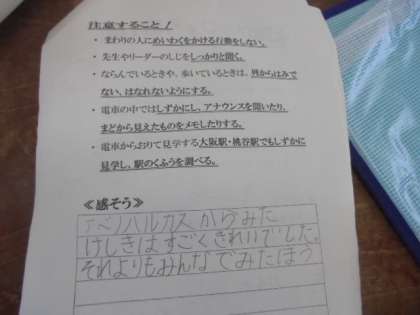 注意すること！
・まわりの人にめいわくをかける行動をしない。
・先生やリーダーのしじをしっかりと聞く。
・ならんでいるときや、歩いているときは、列からはみで
ない、はなれないようにする。
・電車の中ではしずかにし、アナウンスを聞いたり、
まどから見えたものをメモしたりする。
・電車からおりて見学する大阪駅・桃谷駅でもしずかに
見学し、駅のくふうを調べる。
≪感そう≫
アベノハルカスからみた
けしきはすごくきれいでした。
それよりもみんなでみたほう